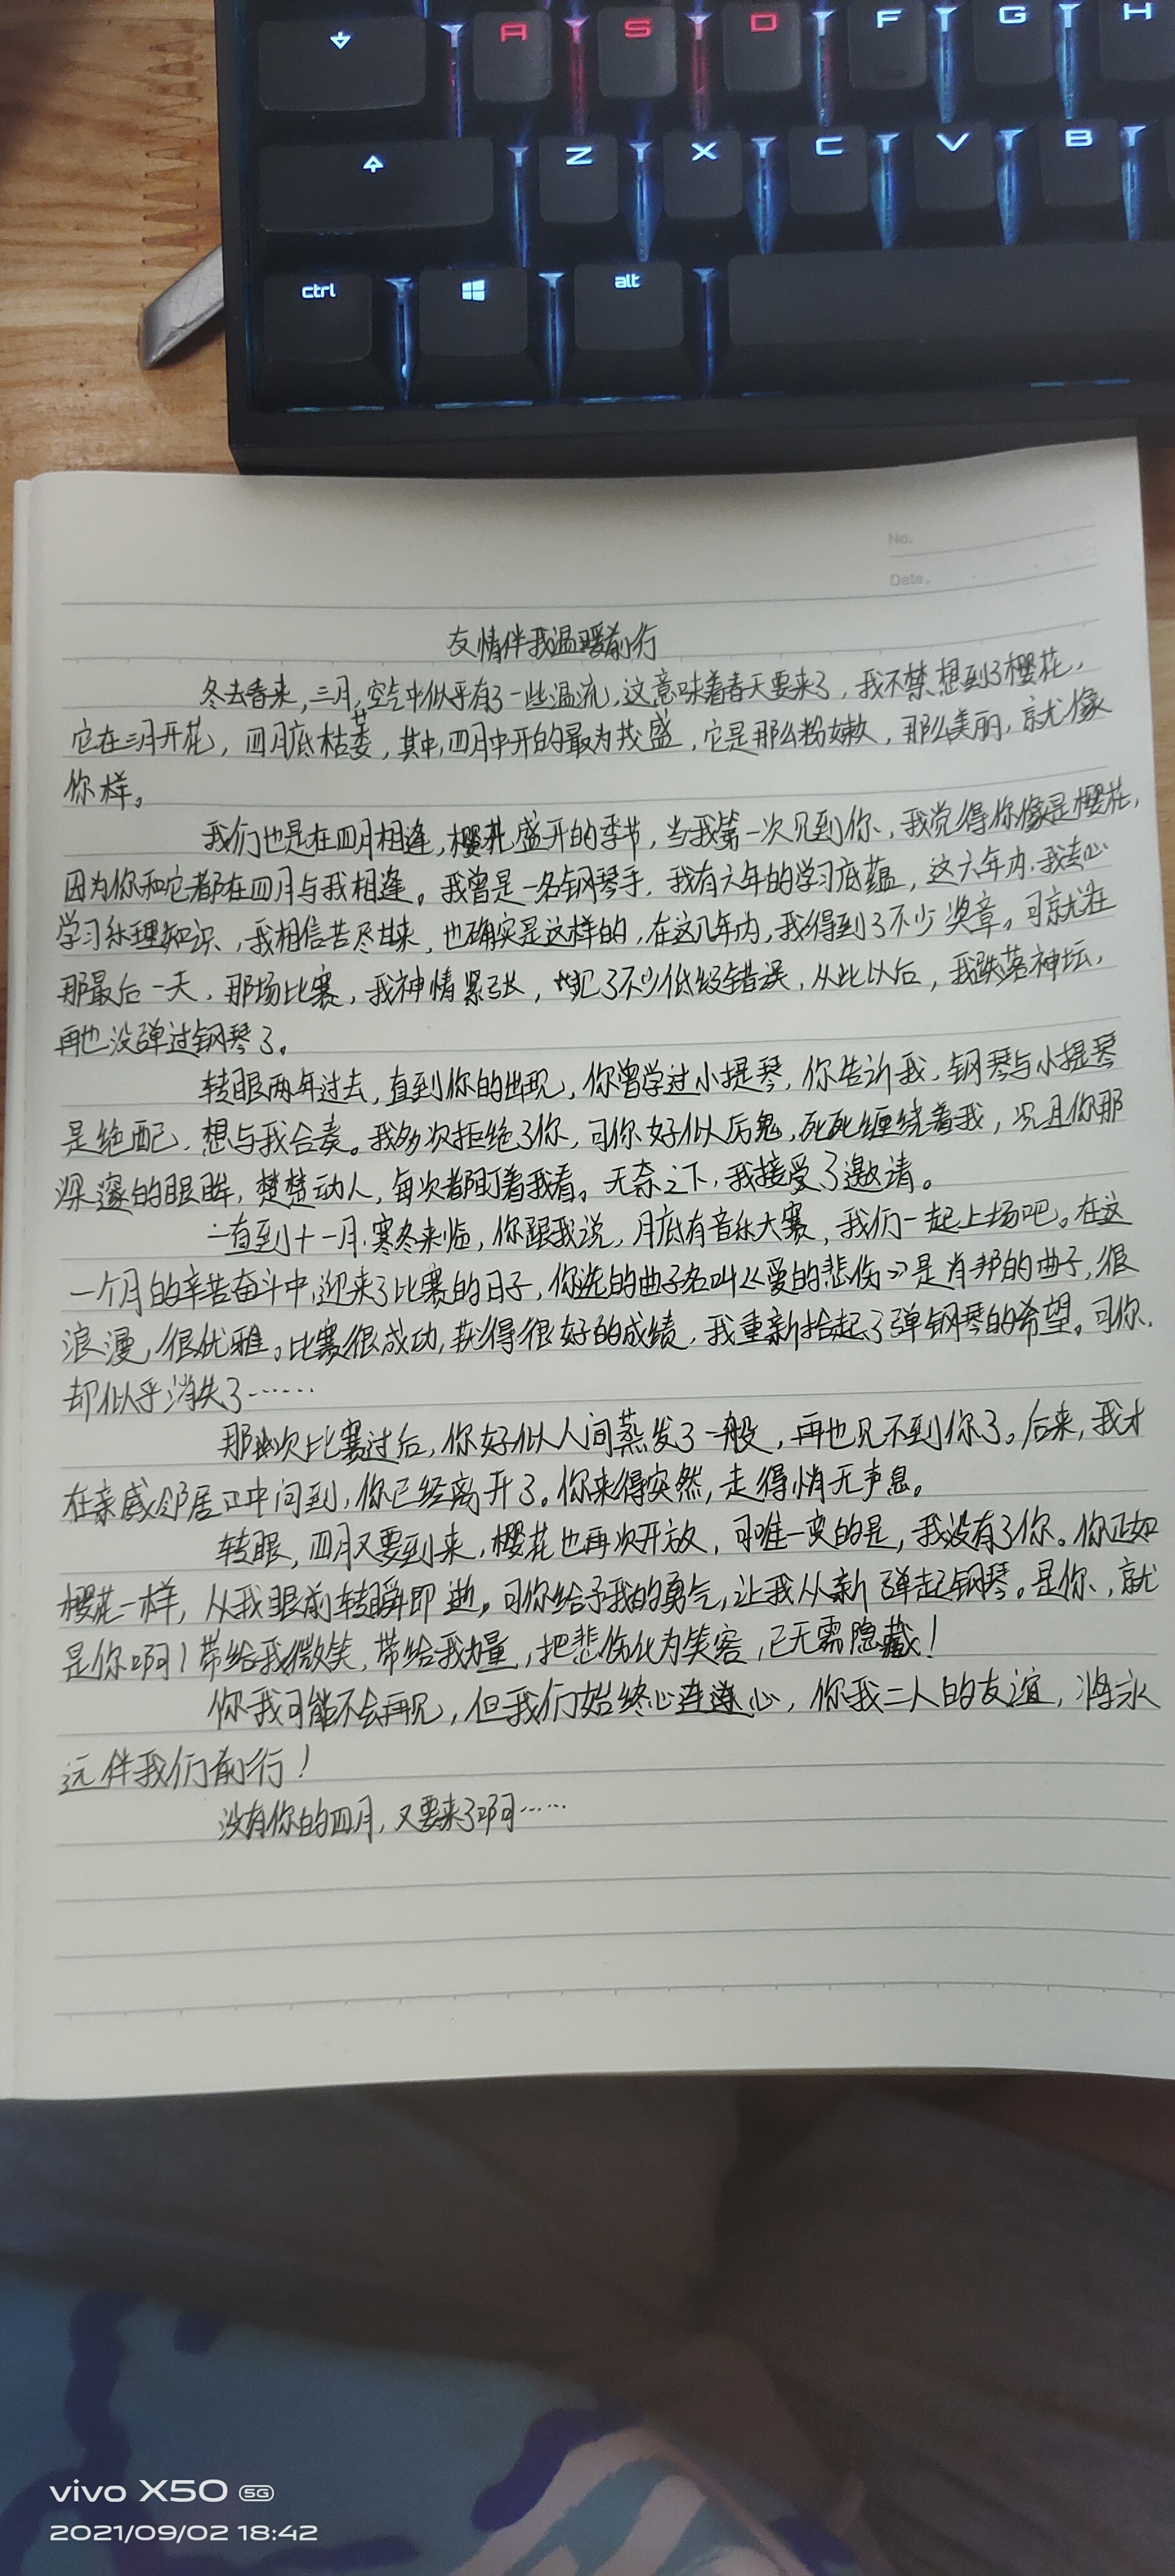 A S D F G H
Z X C V B
ctrl alt
No.
Date.
友情伴我温暖前行
冬去春来,三月,空气中似乎有了一些温流,这意味着春天要来了,我不禁想到了樱花,
它在三月开花,四月底枯萎,其中,四月中开的最为茂盛,它是那么粉嫩,那么美丽,就像
你样。
我们也是在四月相逢,樱花盛开的季节,当我第一次见到你、我觉得你像是樱花,
因为你和它都在四月与我相逢。我曾是一名钢琴手,我有六年的学习底蕴,这六年内,我专心
学习乐理知识、我相信苦尽甘来,也确实是这样的,在这几年内,我得到了不少奖章。可就在
那最后一天,那场比赛,我神情紧张,犯了不少低级错误,从此以后,我跌落神坛,
再也没弹过钢琴了。
转眼两年过去,直到你的出现,你曾学过小提琴,你告诉我,钢琴与小提琴
是绝配,想与我合奏。我多次拒绝了你,可你好似厉鬼,死死缠绕着我,况且你那
深邃的眼眸,楚楚动人,每次都盯着我看。无奈之下,我接受了邀请。
一直到十一月,寒冬来临,你跟我说,月底有音乐大赛,我们一起上场吧。在这
一个月的辛苦奋斗中,迎来了比赛的日子,你选的曲子名叫《爱的悲伤》是肖邦的曲子,很
浪漫,很优雅。比赛很成功,获得很好的成绩,我重新拾起了弹钢琴的希望。可你,
却似乎消失了……
那次比赛过后,你好似人间蒸发了一般,再也见不到你了。后来,我才
在亲戚邻居口中问到,你已经离开了。你来得突然,走得悄无声息。
转眼,四月又要到来,樱花也再次开放,可唯一变的是,我没有了你。你正如
樱花一样,从我眼前转瞬即逝。可你给予我的勇气,让我从新弹起钢琴。是你、就
是你啊!带给我微笑,带给我力量,把悲伤化为笑容,已无需隐藏!
你我可能不会再见,但我们始终心连心,你我二人的友谊,将永
远伴我们前行!
没有你的四月,又要来了啊……
vivo X50 5G
2021/09/02 18:42